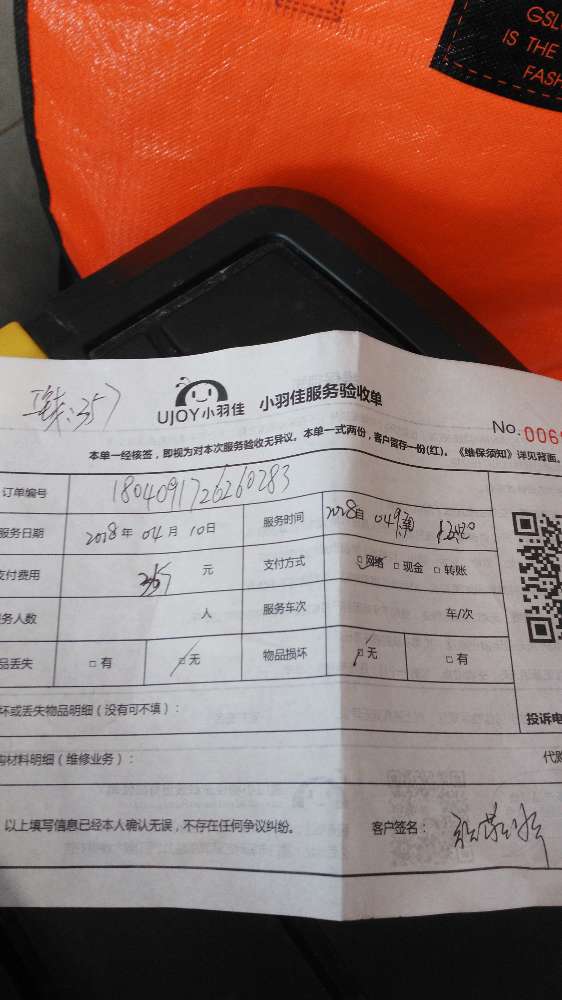 GSL
IS THE
FASH
357
UJOY小羽佳 小羽佳服务验收单
No. 006
本单一经核签，即视为对本次服务验收无异议。本单一式两份，客户留存一份(红)。《维保须知》详见背面。
订单编号 1804091726260283
服务日期 2018年 04月 10日 服务时间 2018
支付费用 357 元 支付方式 □网络 □现金 □转账
务人数 人 服务车次 车/次
品丢失 □有 □无 物品损坏 □无 □有
坏或丢失物品明细（没有可不填）：
投诉电
购材料明细（维修业务）：
代购
以上填写信息已经本人确认无误，不存在任何争议纠纷。 客户签名：